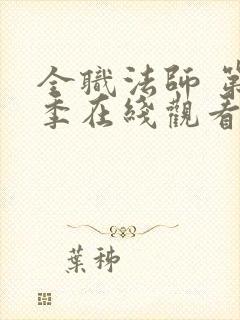 全職法師 第
季在綫觀看
葉秭